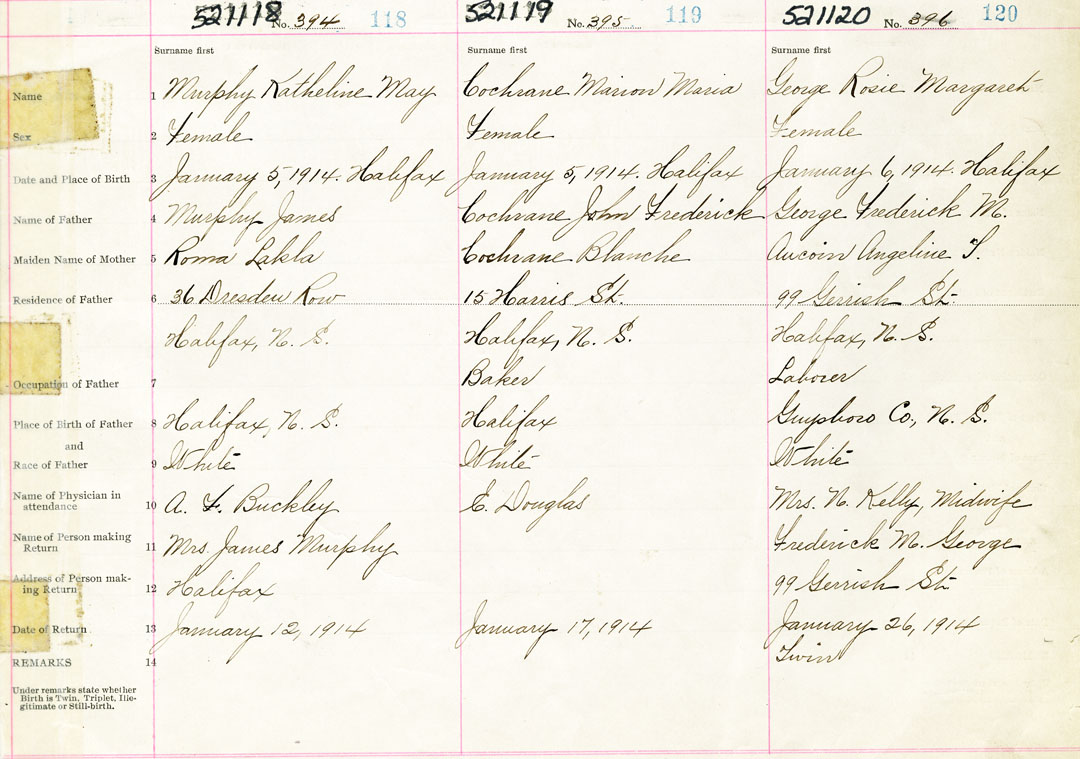 521118 No. 394 118 521119 No. 395 119 521120 No. 396 120
Surname first Surname first Surname first
Name 1 Murphy Katheline May Cochrane Marion Maria George Rosie Margaret
Sex 2 Female Female Female
Date and Place of Birth 3 January 5, 1914. Halifax January 5, 1914. Halifax January 6, 1914. Halifax
Name of Father 4 Murphy James Cochrane John Frederick George Frederick M.
Maiden Name of Mother 5 Roma Lakla Cochrane Blanche Aucoin Angeline S.
Residence of Father 6 36 Dresden Row 15 Harris St. 99 Gerrish St.
Halifax, N. S. Halifax, N. S. Halifax, N. S.
Occupation of Father 7 Baker Laborer
Place of Birth of Father 8 Halifax, N. S. Halifax Guysboro Co., N. S.
and
Race of Father 9 White White White
Name of Physician in
attendance 10 A. F. Buckley E. Douglas Mrs. N. Kelly, Midwife
Name of Person making
Return 11 Mrs. James Murphy Frederick M. George
Address of Person mak-
ing Return 12 Halifax 99 Gerrish St.
Date of Return 13 January 12, 1914 January 17, 1914 January 26, 1914
REMARKS 14 Twin
Under remarks state whether
Birth is Twin, Triplet, Ille-
gitimate or Still-birth.